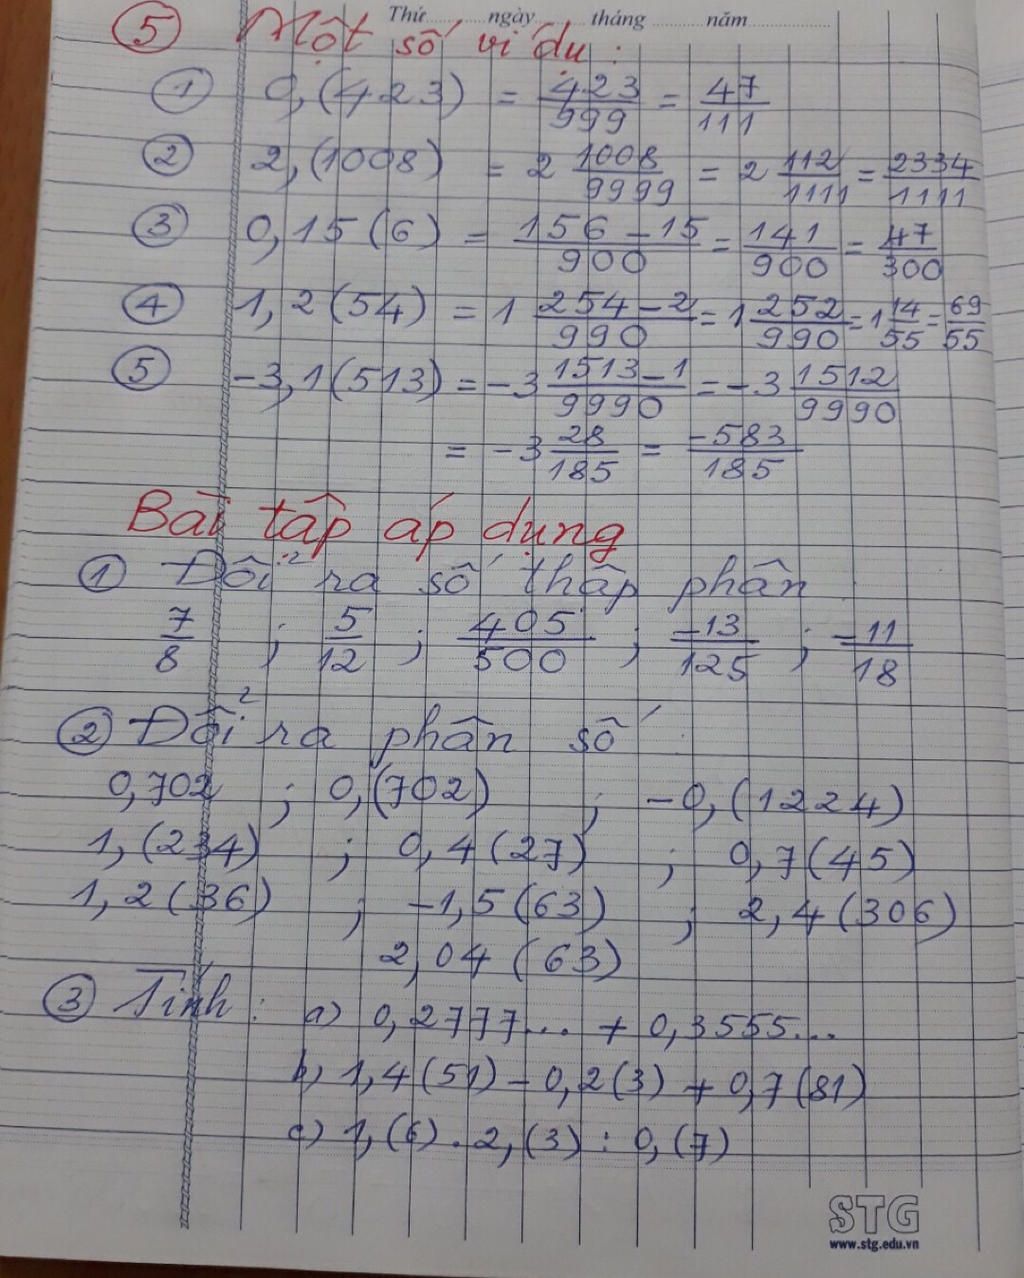 Thứ......... ngày......... tháng......... năm.....................
⑤ Một số ví dụ :
① 0,(423) = 423/999 = 47/111
② 2,(1008) = 2 1008/9999 = 2 112/1111 = 2334/1111
③ 0,15(6) = 156-15/900 = 141/900 = 47/300
④ 1,2(54) = 1 254-2/990 = 1 252/990 = 1 14/55 = 69/55
⑤ -3,1(513) = -3 1513-1/9990 = -3 1512/9990
= -3 28/185 = -583/185
Bài tập áp dụng
① Đổi ra số thập phân
7/8 ; 5/12 ; 405/500 ; -13/125 ; -11/18
② Đổi ra phân số
0,702 ; 0,(702) ; -0,(1224)
1,(234) ; 0,4(27) ; 0,7(45)
1,2(36) ; -1,5(63) ; 2,4(306)
2,04(63)
③ Tính : a) 0,2777... + 0,3555...
b) 1,4(51) - 0,2(3) + 0,7(81)
c) 1,(6) . 2,(3) : 0,(7)
STG
www.stg.edu.vn